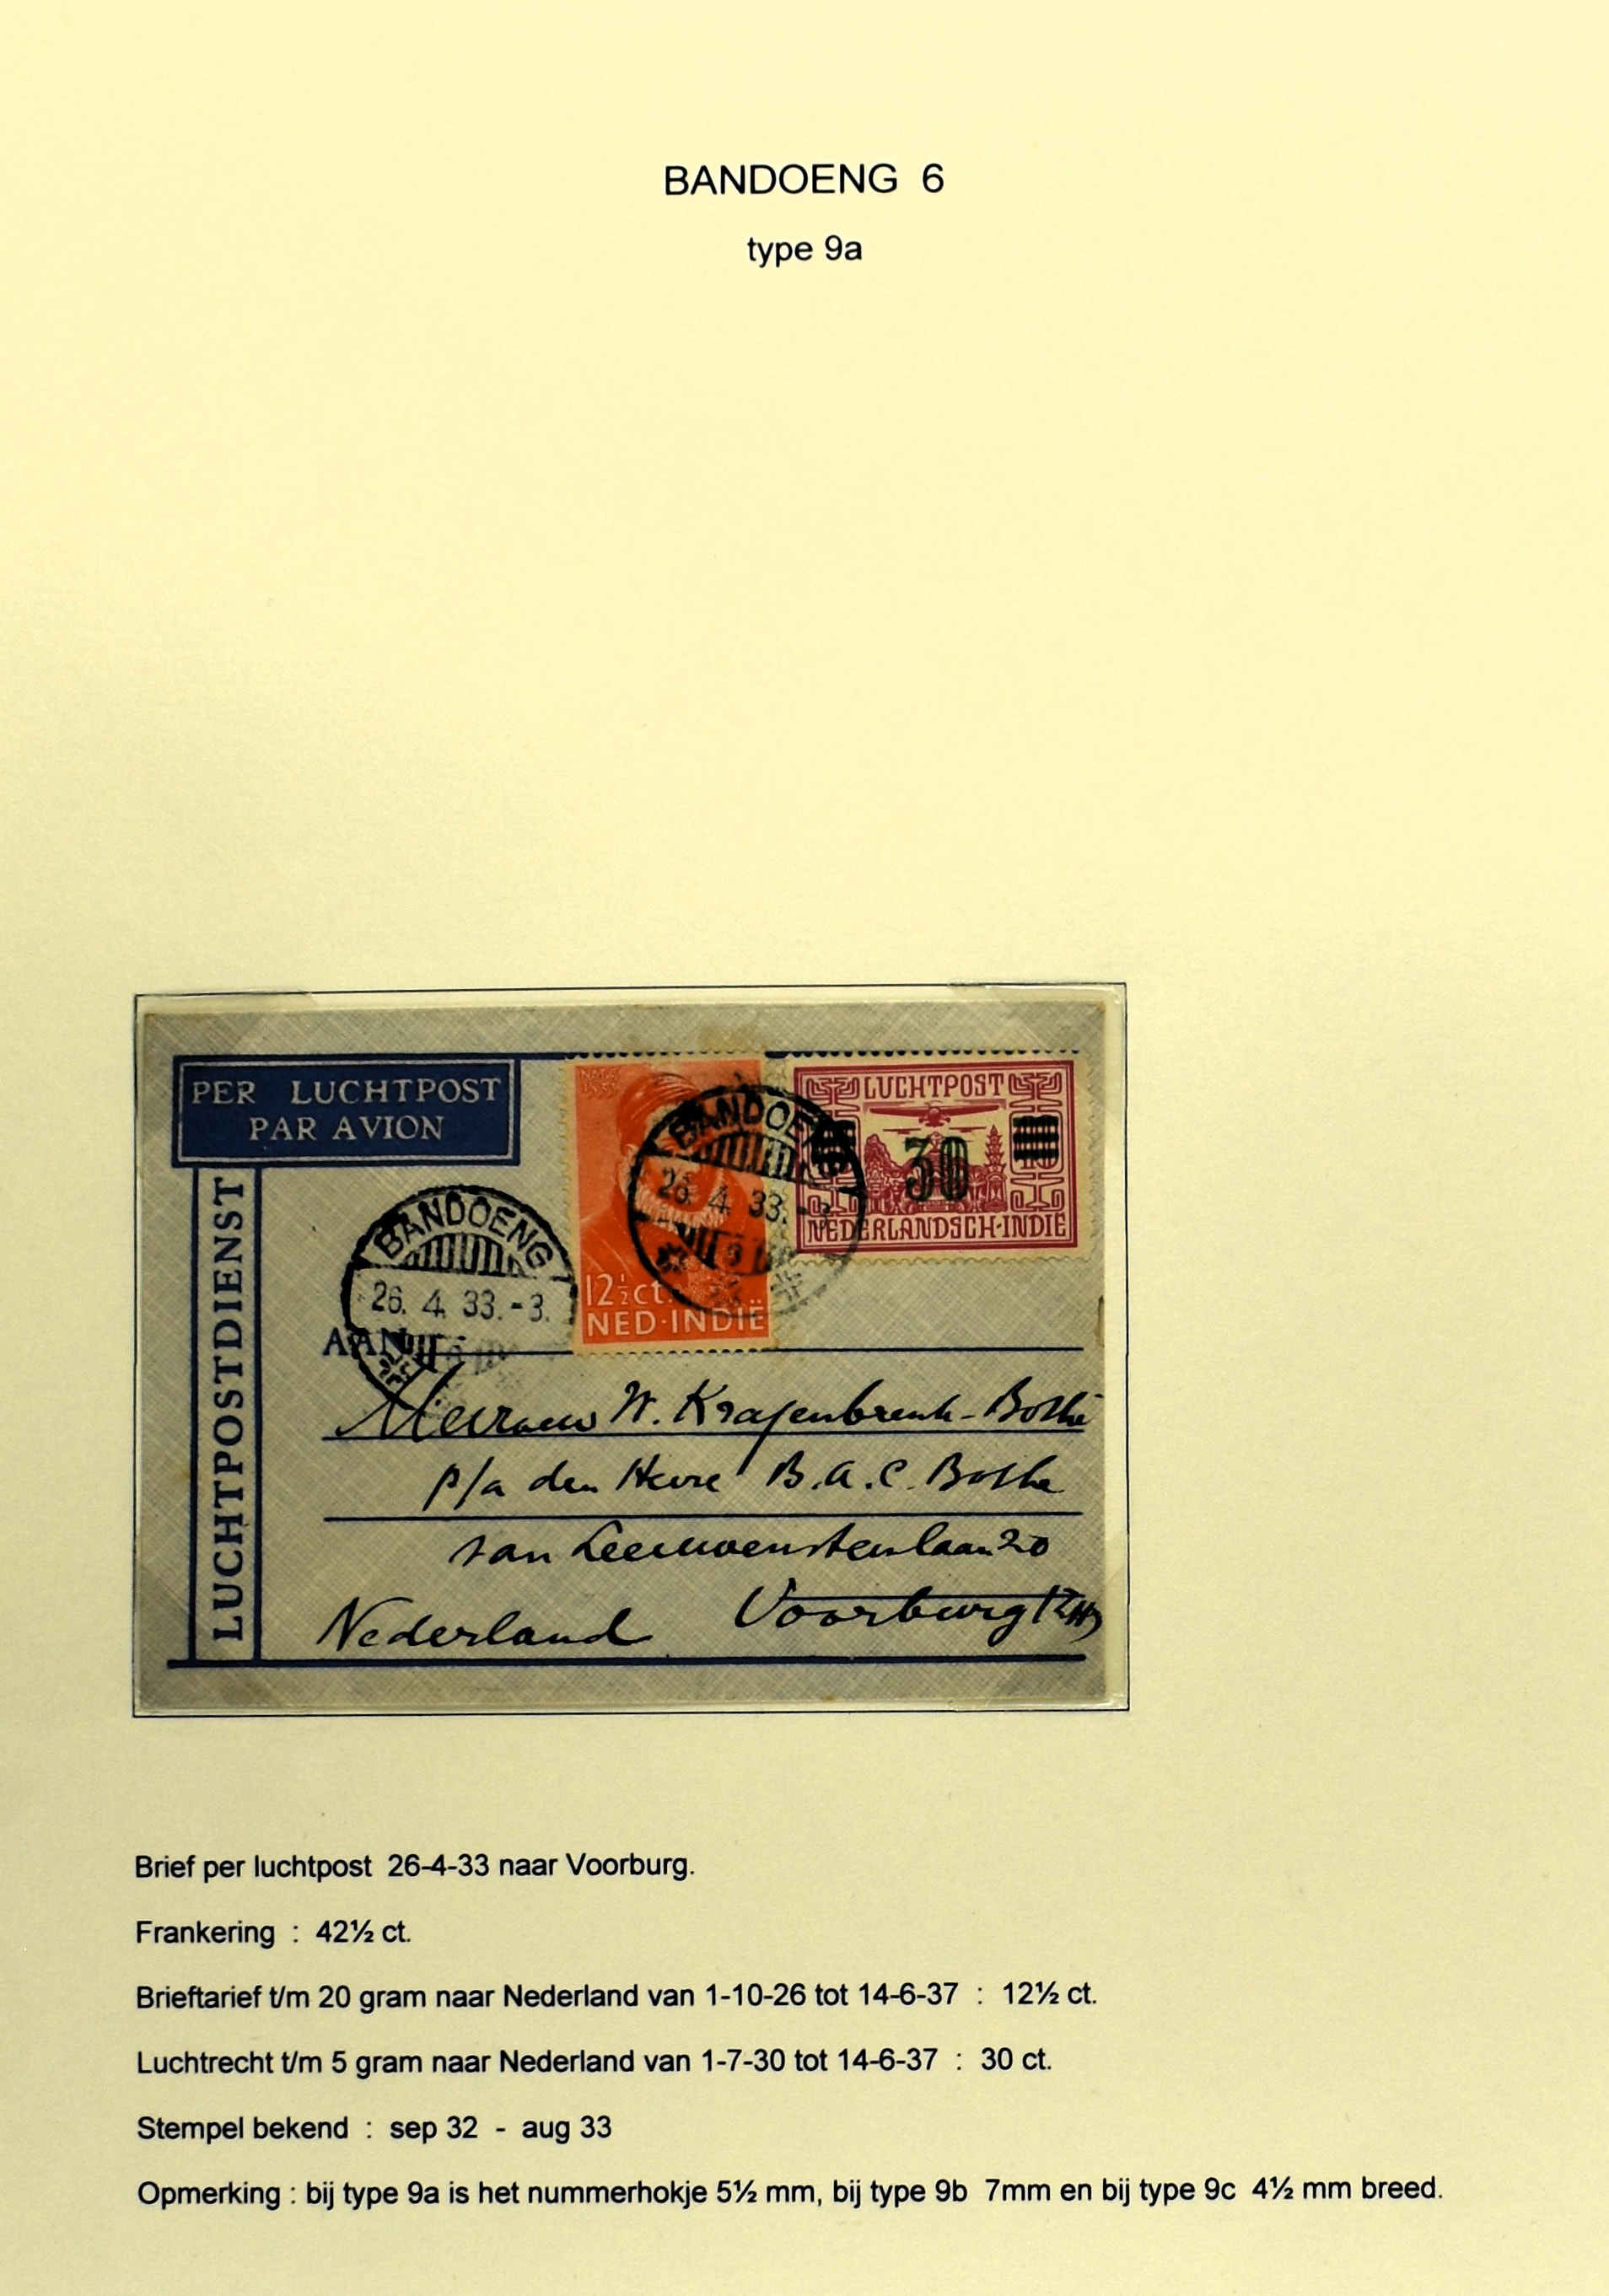 BANDOENG 6
type 9a
PER LUCHTPOST
PAR AVION
LUCHTPOSTDIENST
BANDOENG
26. 4. 33.-3.
AAN
BANDOENG
26. 4. 33.-3
12½ct.
NED·INDIË
LUCHTPOST
30
NEDERLANDSCH-INDIË
Mevrouw W. Krajenbrink-Bothe
p/a den Heere B.A.C. Bothe
van Leeuwensteinlaan 20
Voorburg (ZH)
Nederland
Brief per luchtpost 26-4-33 naar Voorburg.
Frankering : 42½ ct.
Brieftarief t/m 20 gram naar Nederland van 1-10-26 tot 14-6-37 : 12½ ct.
Luchtrecht t/m 5 gram naar Nederland van 1-7-30 tot 14-6-37 : 30 ct.
Stempel bekend : sep 32 - aug 33
Opmerking : bij type 9a is het nummerhokje 5½ mm, bij type 9b 7mm en bij type 9c 4½ mm breed.